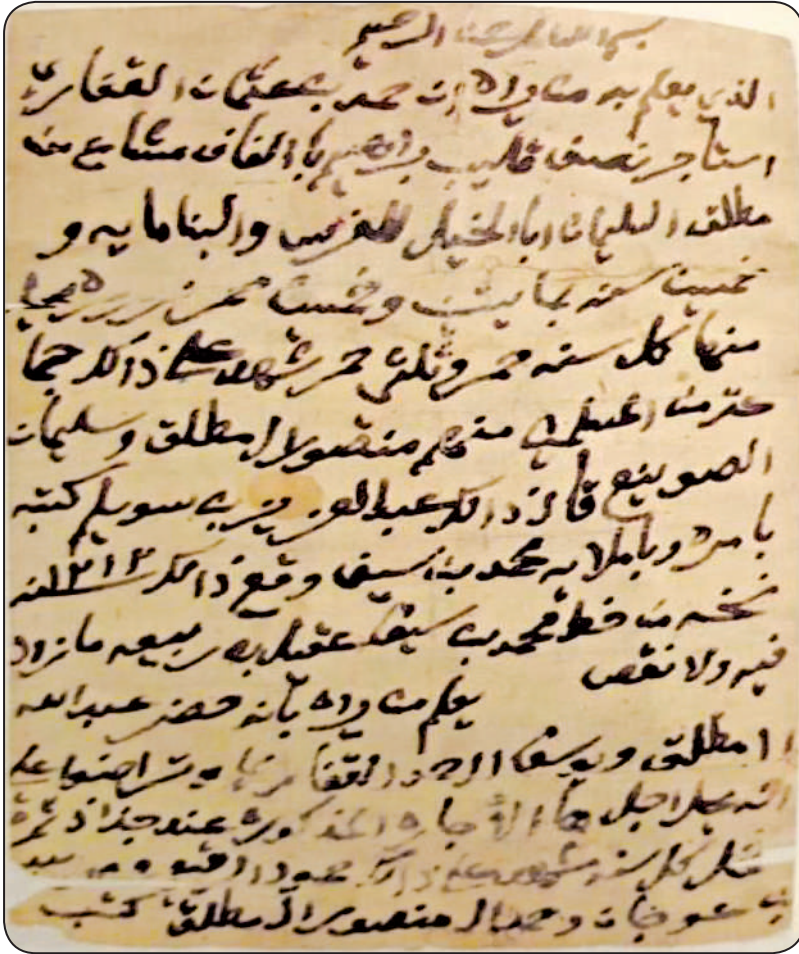 بسم الله الرحمن الرحيم
الذي يعلم به من يراه ان حمد بن عثمان القفاري
استاجر نصف قليب من
مطلق السليمان ابا الخيل للغرس والبنا مايه و
خمسين سنه بمايتين وخمسين
منها كل سنه حمر وثلثي حمر شهد على ذالك جما
عتن من المسلمين منهم منصور ال مطلق وسليمان
الصوينع قال ذالك عبدالعزيز بن سويلم كتبه
بامره وباملايه محمد بن سيف وقع ذالك ١٣١٣ سنه
نخه من خط محمد بن سيف عقيل بن ربيعه ما زاد
فيه ولا نقص يعلم من يراه بانه حضر عبدالله
ال مطلق ويوسف القفاري وتراضوا على
انه يحل اجل هاالأجاره المذكوره عند جذاذ ثمرة
كل سنه شهد على ذالك
بن عوجان وحمد ال منصور ال مطلق كتب